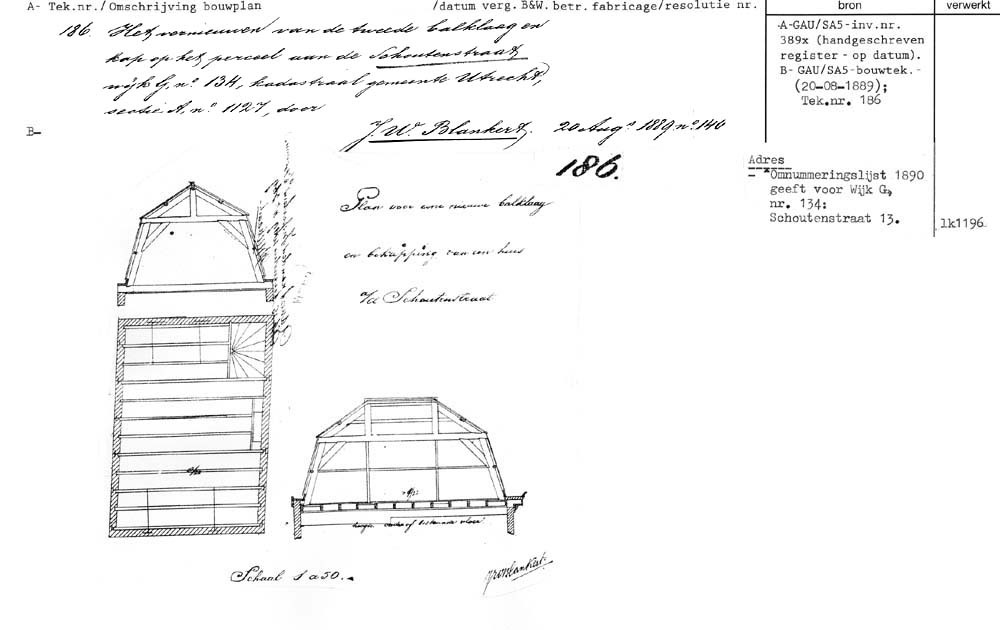 A- Tek.nr./Omschrijving bouwplan /datum verg. B&W. betr. fabricage/resolutie nr. bron verwerkt
186. Het vernieuwen van de tweede balklaag en
kap op het perceel aan de Schoutenstraat,
wijk G, no. 134, kadastraal gemeente Utrecht,
sectie A, no. 1127, door
J. W. Blankert. 20 Augs 1889 no. 140
A-GAU/SA5-inv.nr.
389x (handgeschreven
register - op datum).
B- GAU/SA5-bouwtek.-
(20-08-1889);
Tek.nr. 186
B-
186.
Adres
- *Omnummeringslijst 1890
geeft voor Wijk G,
nr. 134:
Schoutenstraat 13.
lk1196
Plan voor eene nieuwe balklaag
en bekapping van een huis
a/d Schoutenstraat
hoogte of bestaande vloer
Schaal 1 a 50.
JWBlankert